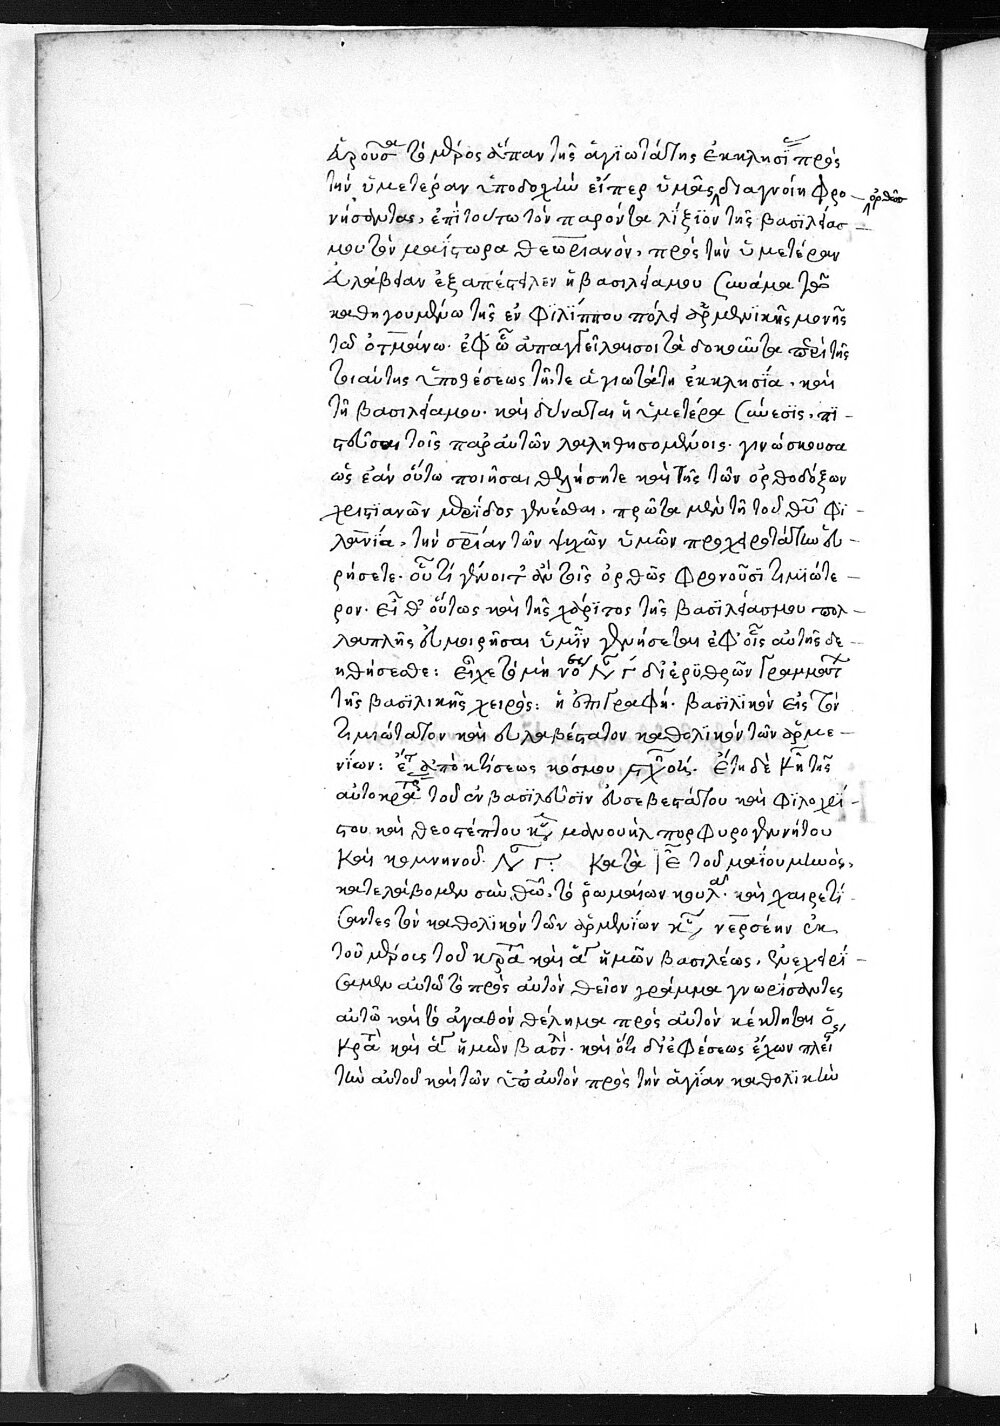 αροῦσα τὸ μέρος ἅπαν τῆς ἁγιωτάτης ἐκκλησί πρὸς
τὴν ὑμετέραν ὑποδοχὴν εἴπερ ὑμᾶς διαγνοίη φρο- ὀρθῶς
νήσοντας, ἐπὶ τούτω τὸν παρόντα λίξϊον τῆς βασιλείας
μου τὸν μαΐστωρα θεωριανὸν, πρὸς τὴν ὑμετέραν
ἐυλάβειαν ἐξαπέστειλεν ἡ βασιλεία μου συνάμα τῶ
καθηγουμένω τῆς ἐν Φιλίππου πόλει ἀρμενικῆς μονῆς
τῶ ὀτμάνω. ἐφ' ὧ ἀπαγγεῖλαι σοι τὰ δοκοῦντα περὶ τῆς
τοιαύτης ὑποθέσεως τῆ, τε ἁγιωτάτη ἐκκλησία, καὶ
τῆ βασιλεία μου. καὶ δύναται ἡ ὑμετέρα σύνεσις, πι-
στεῦσαι τοῖς παρ' αυτῶν λαληθησομένοις. γινώσκουσα
ὡς ἐὰν οὕτω ποιῆσαι θελήσητε καὶ τῆς τῶν ὀρθοδόξων
χριστιανῶν μερίδος γενέσθαι, πρῶτα μὲν τῆ τοῦ θῦ φι-
λανία, τὴν σρίαν τῶν ψυχῶν ὑμῶν προχειροτάτην εὑ-
ρήσετε. οὗ τί γένοιτ' ἄν τις ὀρθῶς φρονοῦσι τιμιώτε-
ρον. εἶθ' οὕτως καὶ τῆς χάριτος τῆς βασιλείας μου πολ-
λαπλῆς εὐμοιρῆσαι ὑμῖν γενήσεται ἐφ' οἷς αυτῆς δε-
ηθήσεσθε: εἶχε τὸ μηνὶ νοε Ιν γ δι' ἐρυθρῶν γραμμάτ
τῆς βασιλικῆς χειρός: ἡ ἐπιγραφή. βασιλικὸν εἰς τὸν
τιμιώτατον καὶ ευλαβέστατον καθολικὸν τῶν ἀρμε-
νίων: ἔτ ἀπὸ κτίσεως κόσμου ͵ςχοη. ἔτη δὲ κη τῆς
αυτοκρα τοῦ ἐν βασιλεῦσιν ευσεβεστάτου καὶ φιλοχρί-
στου καὶ θεοστέπτου κυ μανουὴλ πορφυρογεννήτου
καὶ κομνηνοῦ. Ιν γ: κατὰ ιε τοῦ μαΐου μηνὸς,
κατελάβομεν σὺν θω, τὸ ῥωμαίων κουλα. καὶ χαιρετί-
σαντες τὸν καθολικὸν τῶν ἀρμενίων κυ νερσέην ἐκ
τοῦ μέρους τοῦ κρα καὶ ἁγ ἡμῶν βασιλέως, ἐνεχειρί-
σαμεν αυτῶ τὸ πρὸς αυτὸν θεῖον γράμμα γνωρίσαντες
αυτῶ καὶ τὸ ἀγαθὸν θέλημα πρὸς αυτὸν κέκτηται ὁ,
κρα καὶ ἁγ ἡμῶν βασι. καὶ ὅτι δι' ἐφέσεως ἔχων πλεί
τὴν αυτοῦ καὶ τῶν ὑπ' αυτὸν πρὸς τὴν ἁγίαν καθολικὴν